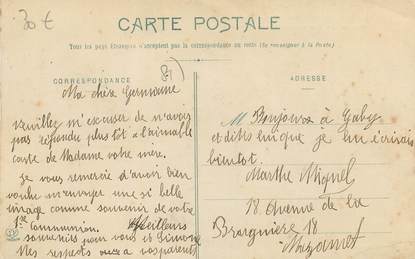 30 €
CARTE POSTALE
Tous les pays étrangers n'acceptent pas la correspondance au recto (Se renseigner à la Poste)
CORRESPONDANCE
ADRESSE
81
Ma chère Germaine
veuillez m'excuser de n'avoir
pas répondu plus tôt a l'aimable
carte de Madame votre mère.
Je vous remercie d'avoir bien
voulu m'envoyer une si belle
image comme souvenir de votre
1re Communion. Meilleurs
souvenirs pour vous et
Mes respects a vos parents
Bonjours à Gaby
et dittes lui que je lui écrirais
bientot.
Marthe Miquel
18. Avenue de la
18
Mazamet